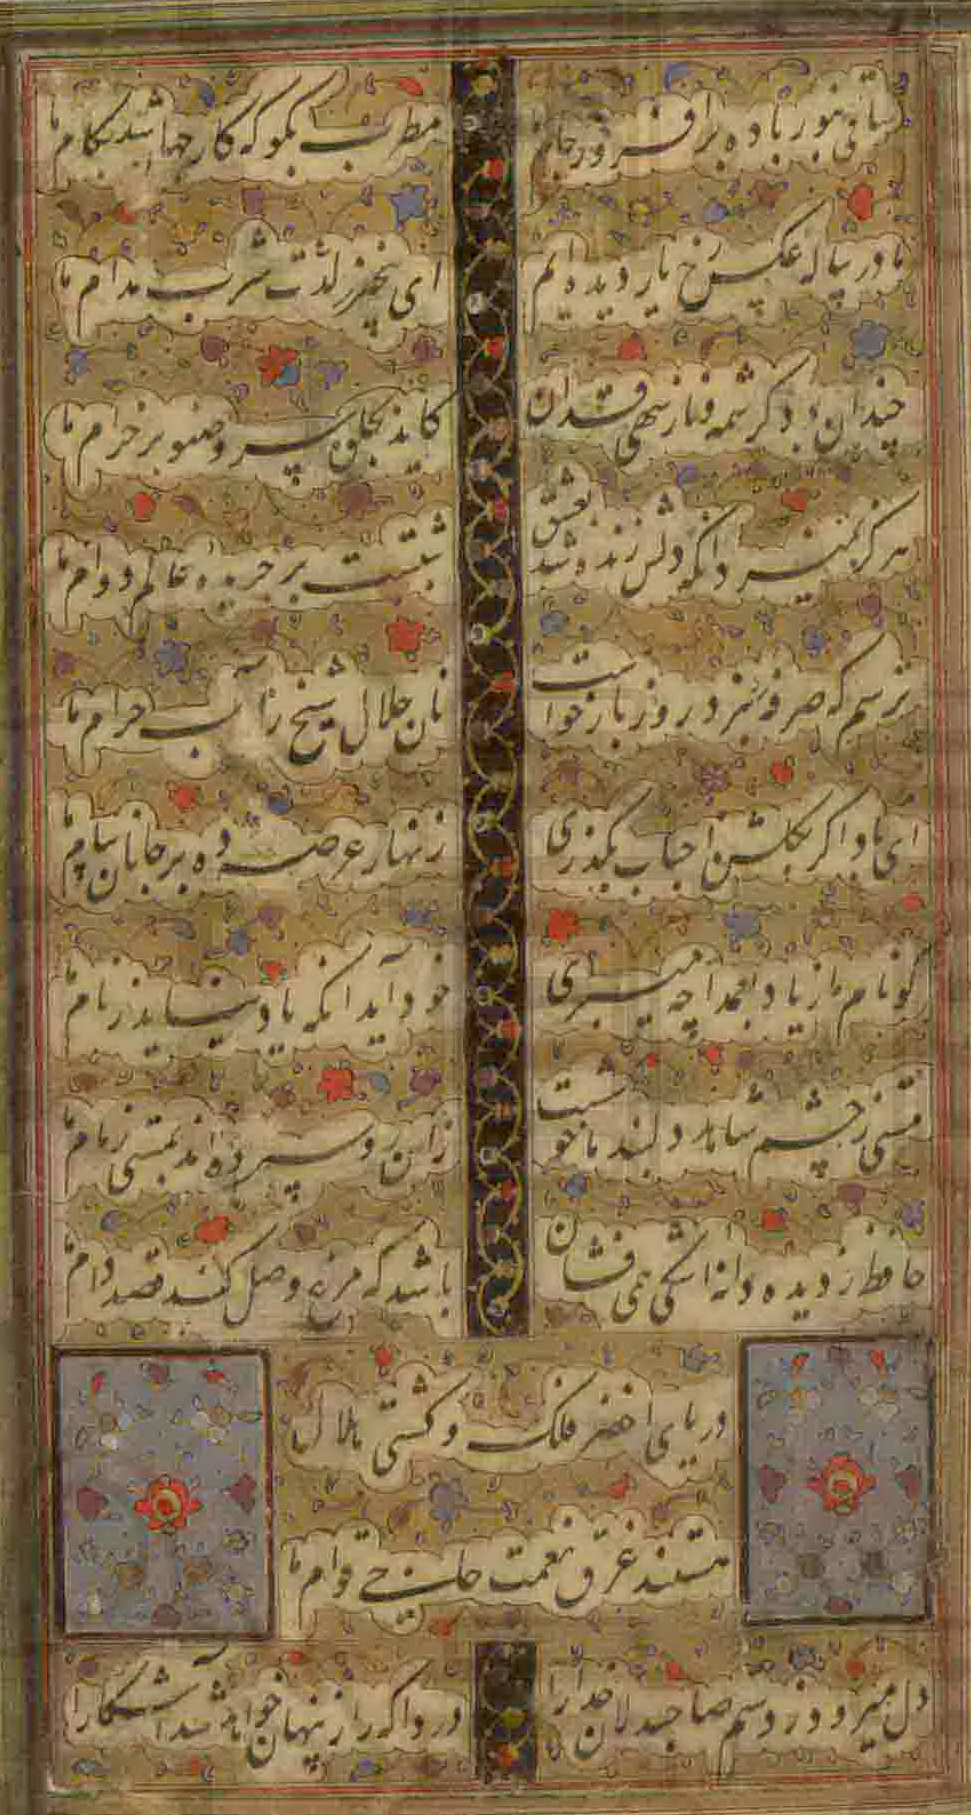 ساقی بنور باده برافروز جام ما
مطرب بگو که کار جهان شد بکام ما
ما در پیاله عکس رخ یار دیده ایم
ای بیخبر ز لذت شرب مدام ما
چندان بود کرشمه و ناز سهی قدان
کاید بجلوه سرو صنوبر خرام ما
هرگز نمیرد آنکه دلش زنده شد بعشق
ثبتست بر جریده عالم دوام ما
ترسم که صرفه نبرد روز بازخواست
نان حلال شیخ ز آب حرام ما
ای باد اگر بگلشن احباب بگذری
زنهار عرضه ده بر جانان پیام ما
گو نام ما ز یاد بعمدا چه میبری
خود آید آنکه یاد نیاید ز نام ما
مستی ز چشم شاهد دلبند ما خوشست
زان رو سپرده اند بمستی زمام ما
حافظ ز دیده دانه اشکی همی فشان
باشد که مرغ وصل کند قصد دام ما
دریای اخضر فلک و کشتی هلال
هستند غرق نعمت حاجی قوام ما
دل میرود ز دستم صاحبدلان خدا را
دردا که راز پنهان خواهد شد آشکارا